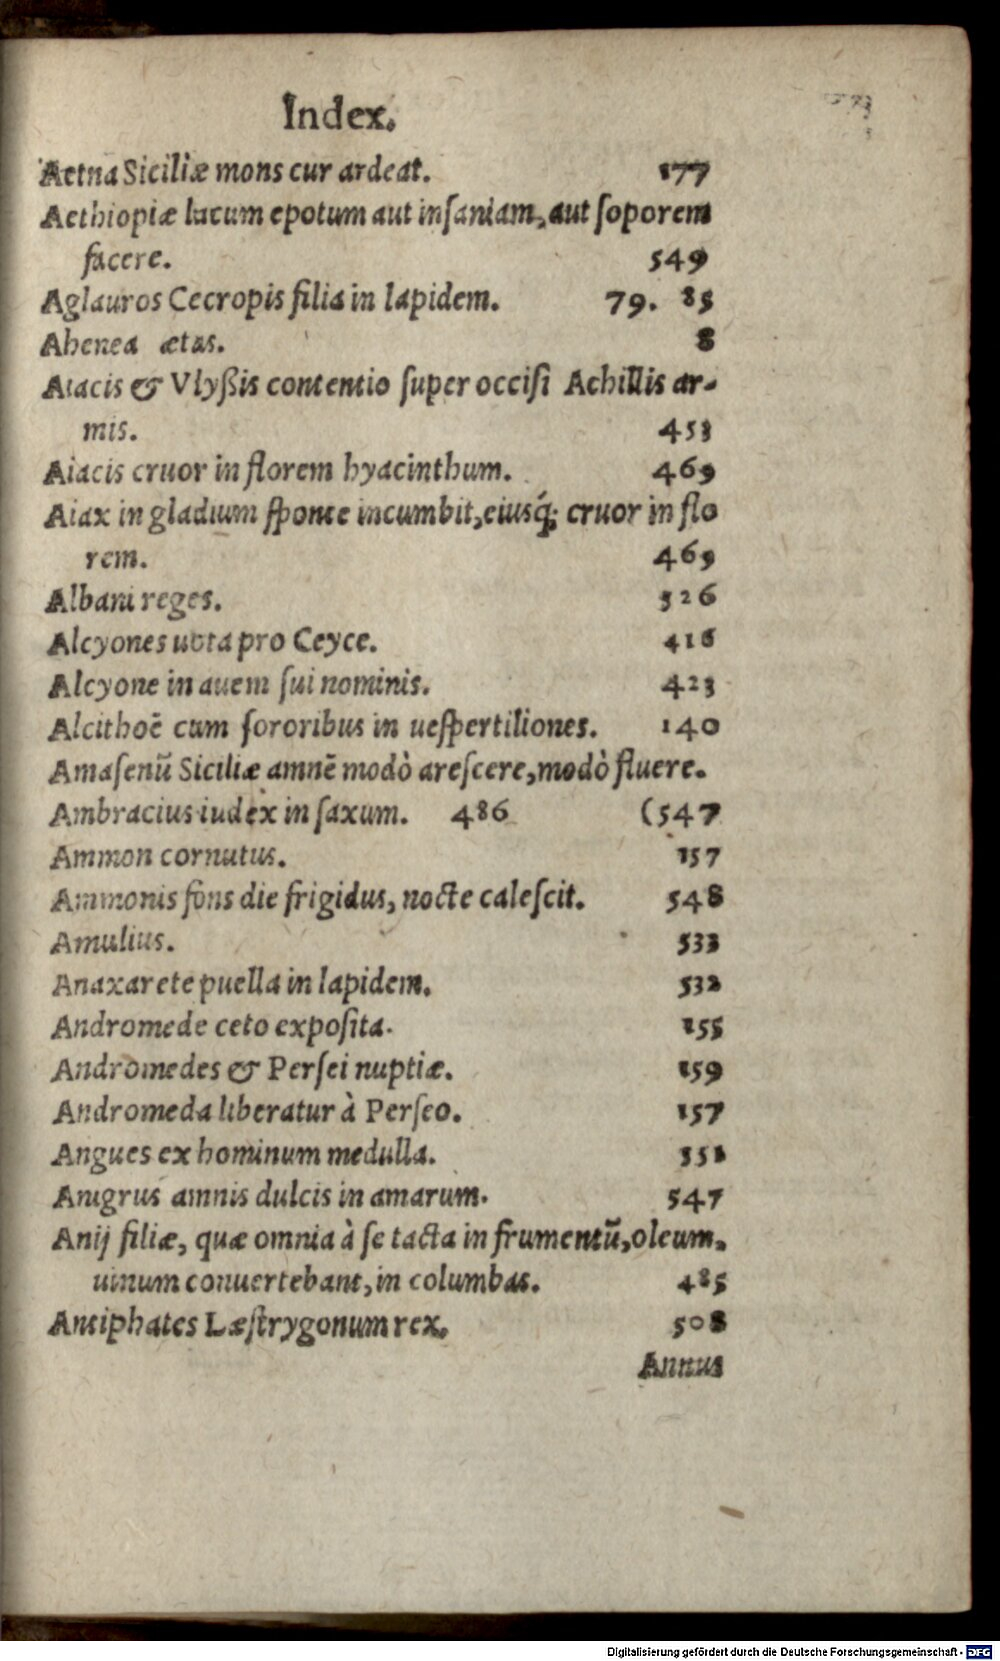 Index.
Aetna Siciliæ mons cur ardeat. 177
Aethiopiæ lacum epotum aut inſaniam, aut ſoporem
facere. 549
Aglauros Cecropis filia in lapidem. 79. 85
Ahenea ætas. 8
Aiacis & Vlyßis contentio ſuper occiſi Achillis ar-
mis. 453
Aiacis cruor in florem hyacinthum. 469
Aiax in gladium ſponte incumbit, eiusq́; cruor in flo
rem. 469
Albani reges. 526
Alcyones uota pro Ceyce. 416
Alcyone in auem ſui nominis. 423
Alcithoē cum ſororibus in ueſpertiliones. 140
Amaſenū Siciliæ amnē modò areſcere, modò fluere.
Ambracius iudex in ſaxum. 486 (547
Ammon cornutus. 157
Ammonis fons die frigidus, nocte caleſcit. 548
Amulius. 533
Anaxarete puella in lapidem. 532
Andromede ceto expoſita. 155
Andromedes & Perſei nuptiæ. 159
Andromeda liberatur à Perſeo. 157
Angues ex hominum medulla. 551
Anigrus amnis dulcis in amarum. 547
Anij filiæ, quæ omnia à ſe tacta in frumentū, oleum,
uinum conuertebant, in columbas. 485
Antiphates Læſtrygonum rex. 508
Annus
Digitalisierung gefördert durch die Deutsche Forschungsgemeinschaft - DFG